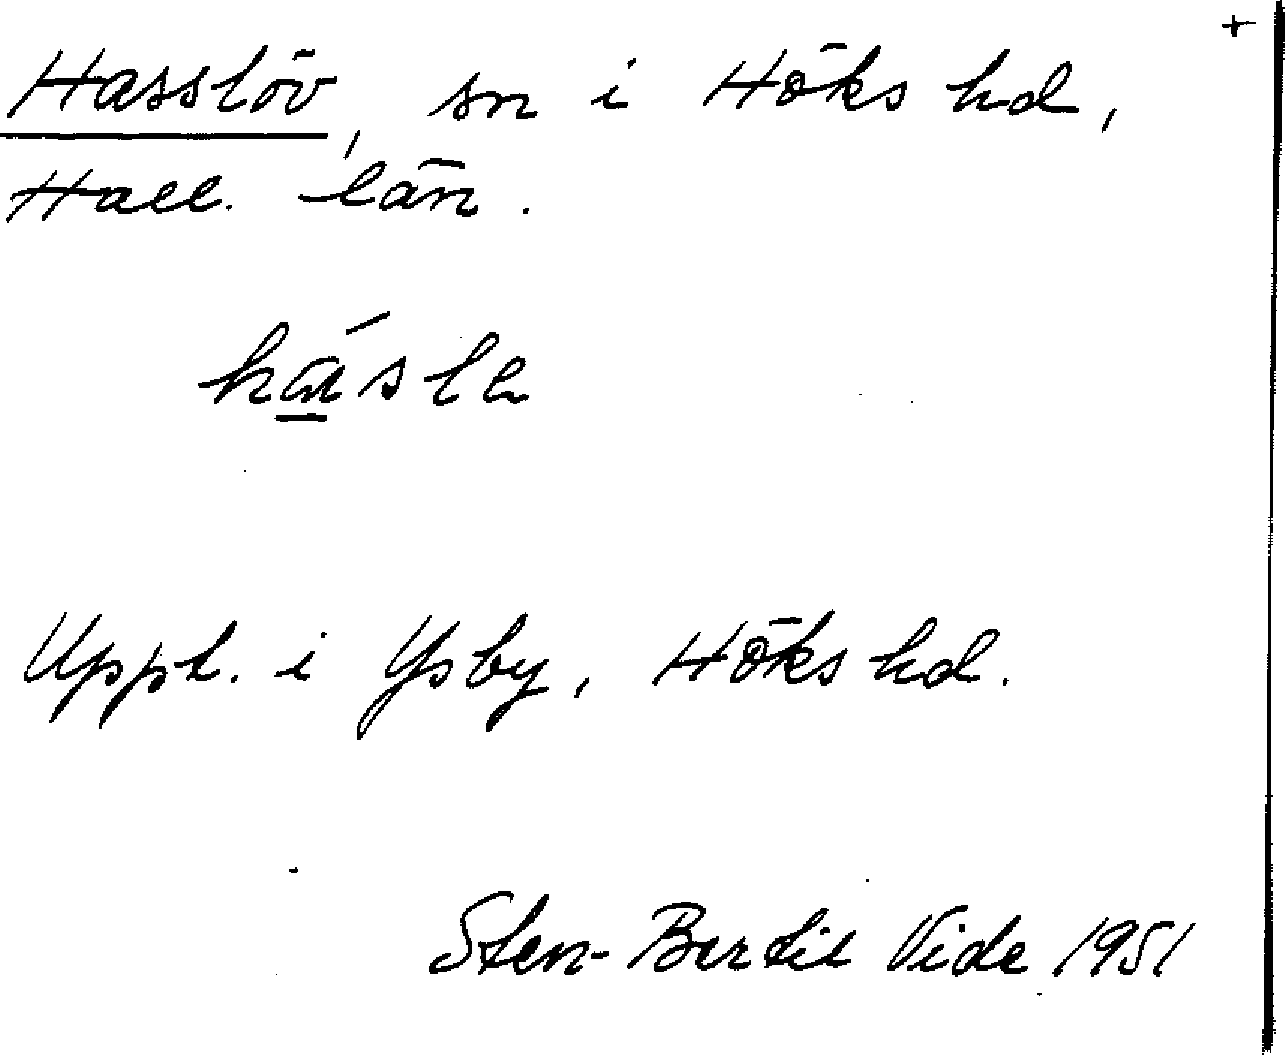 +
Hasslöv, sn i Höks hd,
Hall. län.
hásle
Uppt. i Ysby, Höks hd.
Sten-Bertil Vide 1951